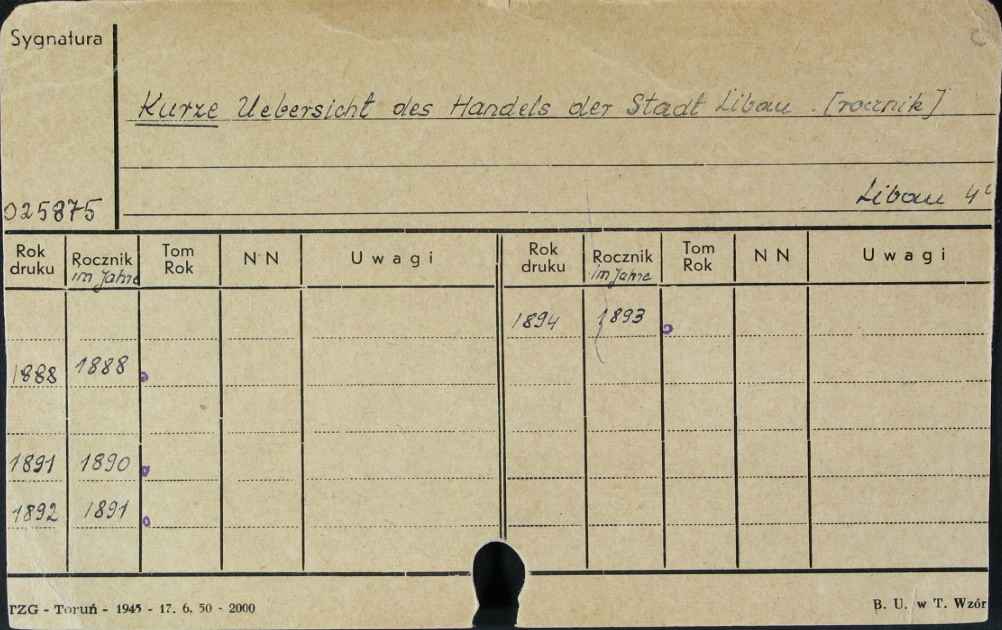 Sygnatura
Kurze Uebersicht des Handels der Stadt Libau. [rocznik]
025875
Libau 4°
Rok druku Rocznik im Jahre Tom Rok N N Uwagi Rok druku Rocznik im Jahre Tom Rok N N Uwagi
1894 1893
1888 1888
1891 1890
1892 1891
TZG - Toruń - 1945 - 17. 6. 50 - 2000
B. U. w T. Wzór